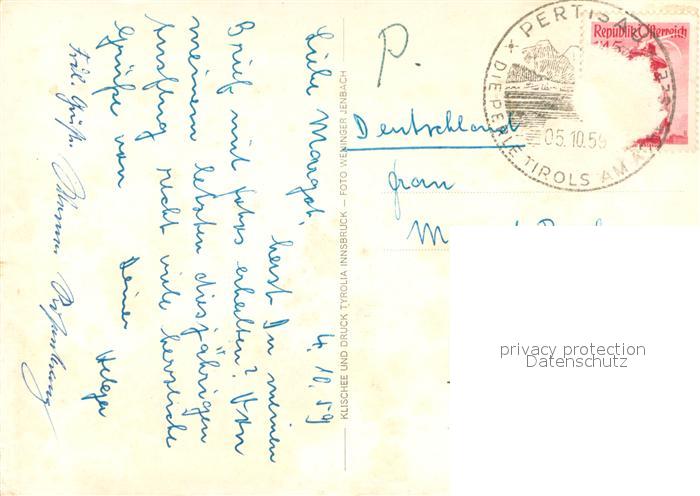 4.10.59
Liebe Margot,
hast Du meinen
Brief mit Fotos erhalten? Von
meinem letzten diesjährigen
Ausflug recht viele herzliche
Grüße von
Deiner Helga
Frdl. Grüße
KLISCHEE UND DRUCK TYROLIA INNSBRUCK — FOTO WENINGER JENBACH
P.
Deutschland
Frau
PERTISAU
DIE PERLE TIROLS AM
05.10.59
Republik Österreich
privacy protection
Datenschutz